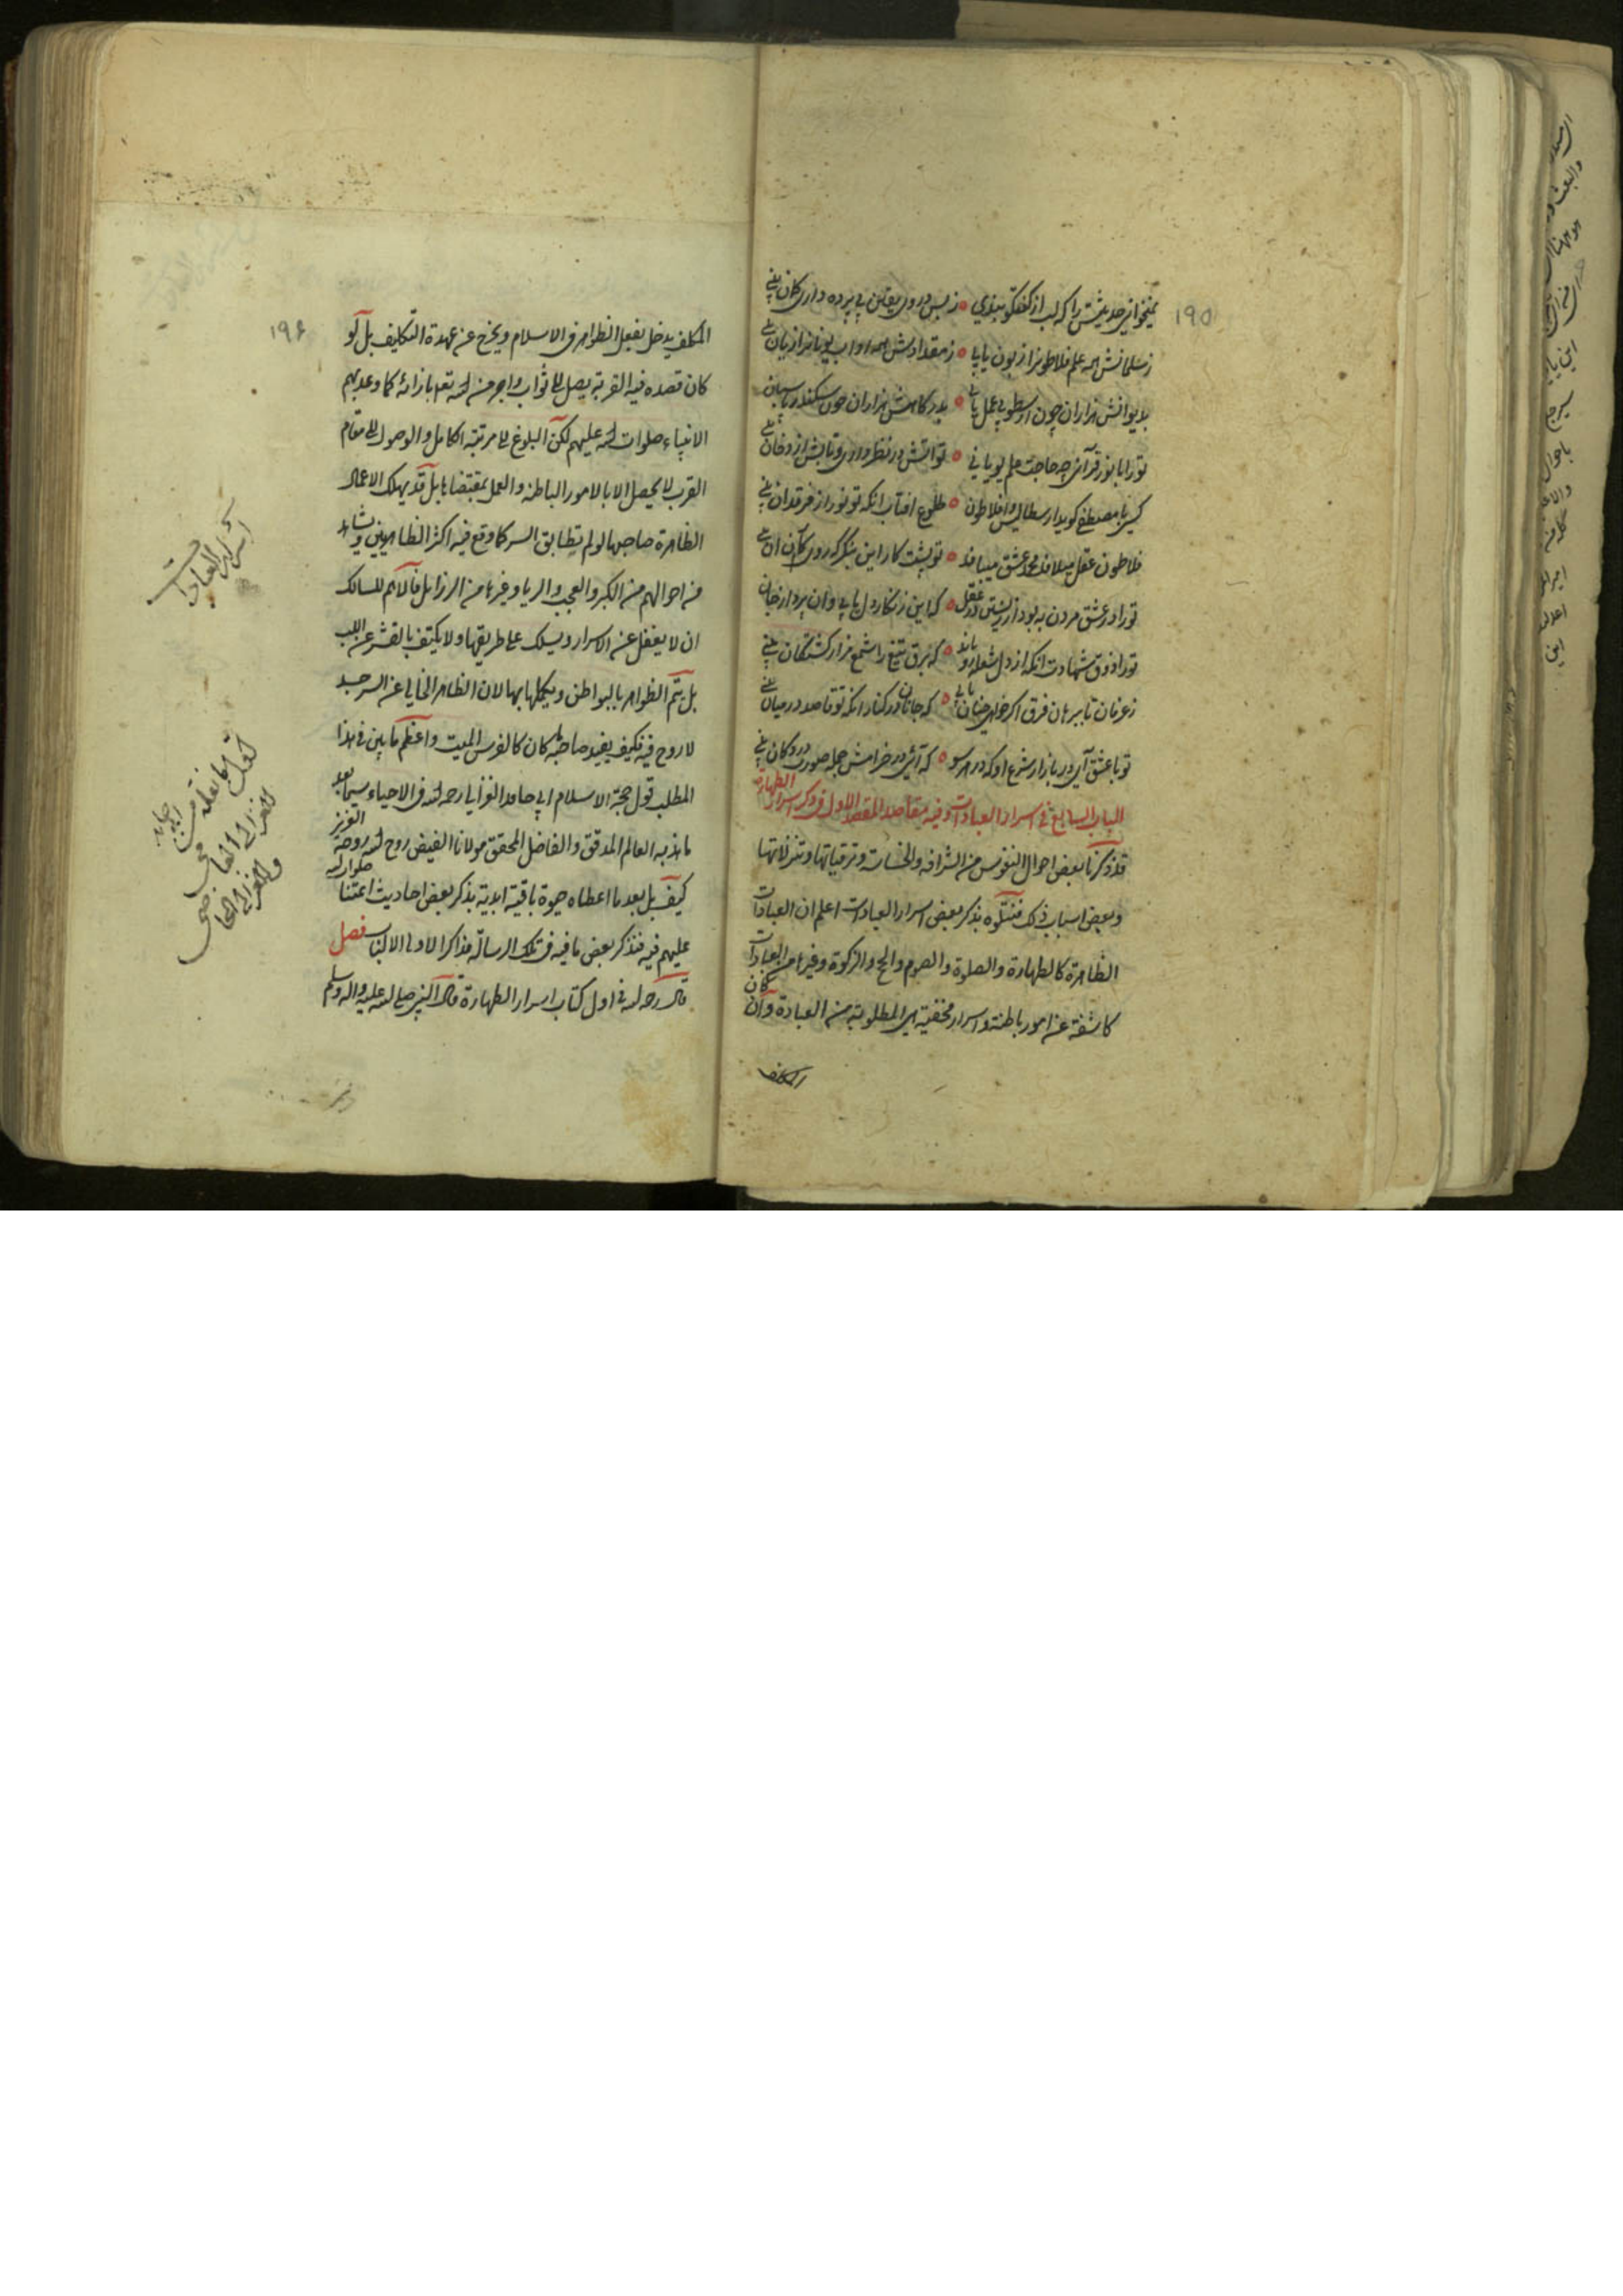 ١٩٥
نمیخوانی حدیثش را که لب از گفتگو بندی ٥ ز بس در وی یقین بی پرده داری کان بینی
ز سلمانش همه علم فلاطونرا زبون یابی ٥ ز مقدادش همه آداب یونانرا زیان بینی
بدیوانش هزاران چون ارسطو بی عمل یابی ٥ بدرگاهش هزاران چون سکندر پاسبان بینی
تو را با نور قرآن چه حاجت علم یونانی ٥ تو آتش در نظر داری و تابش از دخان بینی
کسی با مصطفی گوید ارسطالیس و افلاطون ٥ طلوع آفتاب آنکه تو نور از فرقدان بینی
فلاطون عقل میلافد محمد عشق میبافد ٥ تو پشت کار این بنگر که روی کار آن بینی
تو را در عشق مردن به بود از زیستن در عقل ٥ که این زنگار دل یابی و آن پرداز جان
تو را ذوق شهادت آنکه از دل شعله رو یابد ٥ که برق تیغ را شمع مزار کشتگان بینی
ز عرفان تا ببرهان فرق اگر خواهی چنان یابی ٥ که جانان در کنار آنکه تو قاصد در میان بینی
تو با عشق آی در بازار شرع او که در هر سو ٥ که آئی در خرامش جمله صورت در دکان بینی
الباب السابع فی اسرار العبادات وفیه مقاصد المقصد الاول فی ذکر اسرار الطهارة
قد ذکرنا بعض احوال النفوس من الشرافه والخساسة وترقیاتها وتنزلاتها
وبعض اسباب ذلک فنتلوه بذکر بعض اسرار العبادات اعلم ان العبادات
الظاهرة کالطهارة والصلوة والصوم والحج والزکوة وغیرها من العبادات
کاشفة عن امور باطنة واسرار مخفیة هی المطلوبة من العبادة وان کان
المکلف
١٩٦
المکلف یدخل بفعل الظواهر فی الاسلام ویخرج عن عهدة التکالیف بل لو
کان قصده فیه القربة یصل الی ثواب واجر من الله تعم بازائه کما وعد بهم
الانبیاء صلوات الله علیهم لکن البلوغ الی مرتبة الکامل والوصول الی مقام
القرب لا یحصل الا بالامور الباطنه والعمل بمقتضاها بل قد یهلک الاعمال
الظاهرة صاحبها لو لم تطابق السر کما وقع فیه اکثر الظاهریین ویشاهد
من احوالهم من الکبر والعجب والریا وغیرها من الرزائل فالاهم للسالک
ان لا یغفل عن الاسرار ویسلک علی طریقها ولا یکتف بالقشر عن اللب
بل یتم الظواهر بالبواطن ویکملها بها لان الظاهر الخالی عن السر جسد
لا روح فیه فکیف یفید صاحبه کان کالفرس المیت واعظم ما یبین فی هذا
المطلب قول حجة الاسلام ابی حامد الغزالی رحمه الله فی الاحیاء سیما بعد
ما هذبه العالم المدقق والفاضل المحقق مولانا الفیض روح الله روحه العزیز
کیف بل بعد ما اعطاه حیوة باقیة ابدیة بذکر بعض احادیث ائمتنا صلوات الله
علیهم فیه فنذکر بعض ما فیه فی تلک الرسالة مذاکرا لاولی الالباب فصل
قال رحمه الله فی اول کتاب اسرار الطهارة قال النبی صلی الله علیه واله وسلم
اسرار العبادات